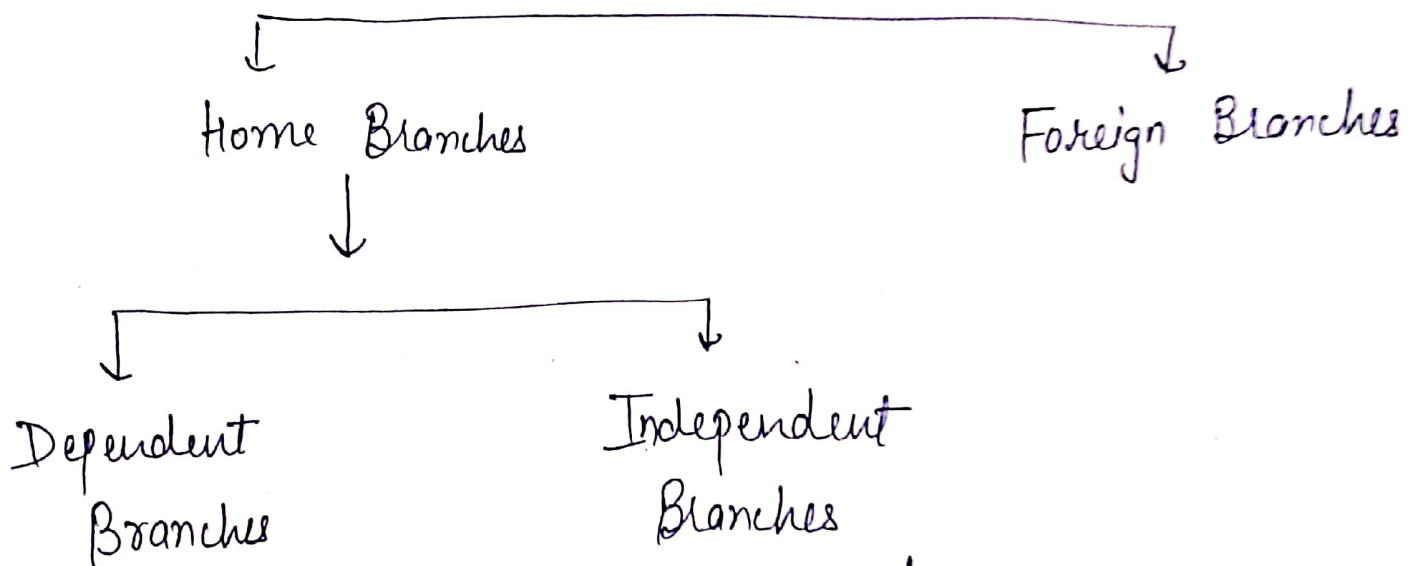 Home Branches
Foreign Branches
Dependent
Branches
Independent
Branches